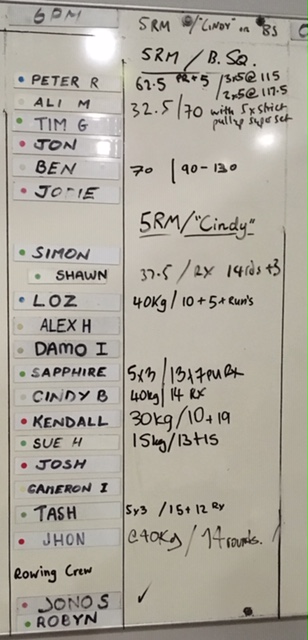 6PM 5RM / "CINDY" or BS
5RM / B.SQ.
PETER R 62.5 PR+5 / 3x5@115
/ 2x5@117.5
ALI M 32.5/70 with 5xstrict
pullup superset
TIM G
JON
BEN 70 | 90-130
JODIE
5RM/"Cindy"
SIMON
SHAWN 37.5 / RX 14rds+3
LOZ 40Kg / 10+5+Run's
ALEX H
DAMO I
SAPPHIRE 5x3 / 13x7PU Rx
CINDY B 40kg/ 14 RX
KENDALL 30kg/10+19
SUE H 15kg/13+15
JOSH
CAMERON I
TASH 5x3 /15+12 Rx
JHON @40Kg / 14 rounds.
Rowing Crew
JONO S ✓
ROBYN